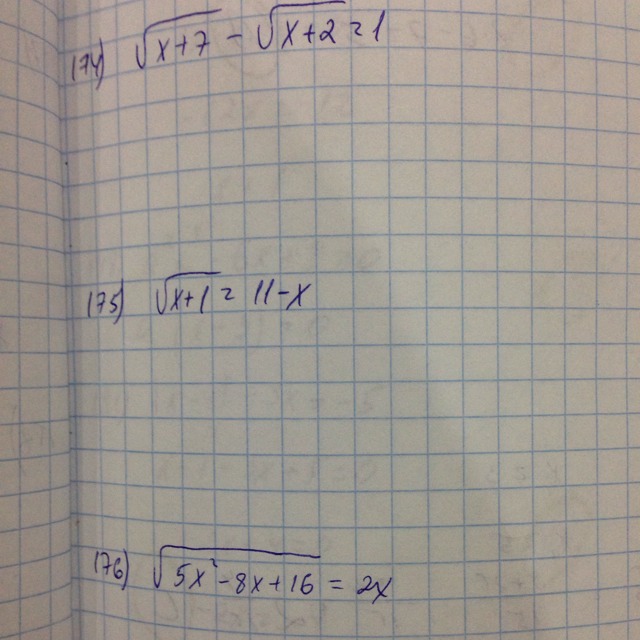 174) √(x+7) - √(x+2) = 1
175) √(x+1) = 11-x
176) √(5x²-8x+16) = 2x